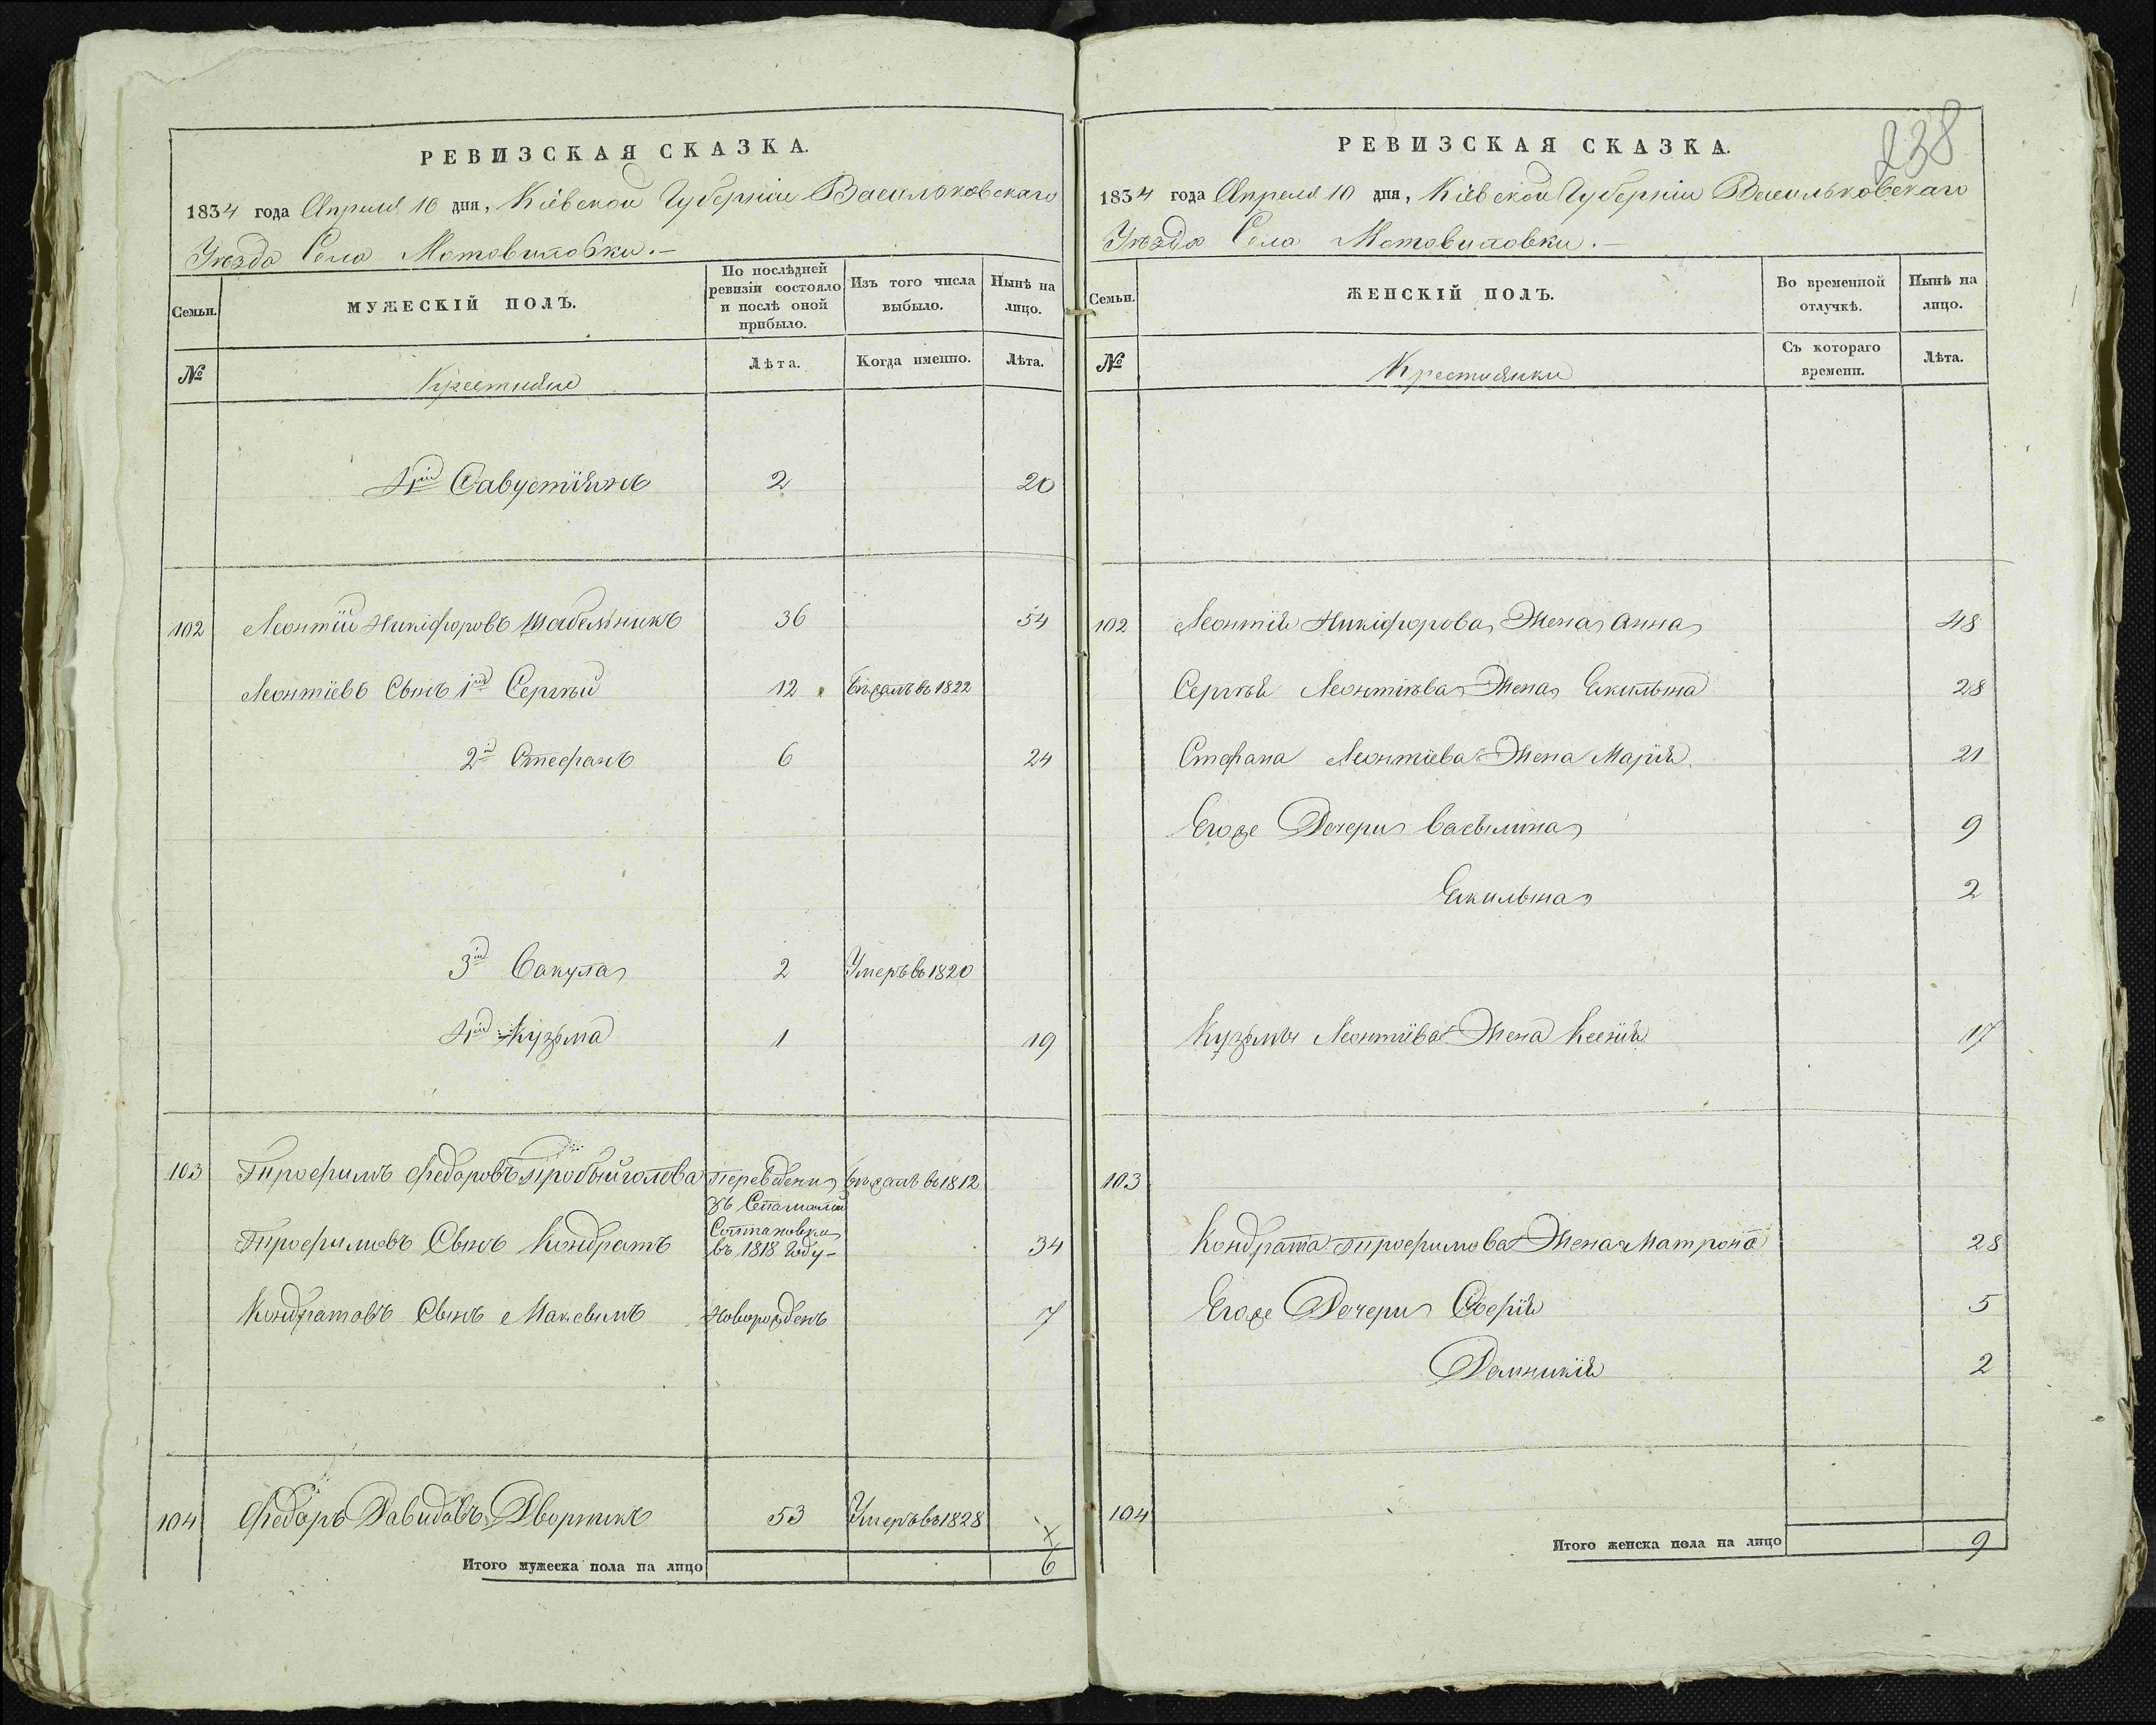 РЕВИЗСКАЯ СКАЗКА.
1834 года Апреля 10 дня, Кіевской Губерніи Васильковскаго
Уезда Села Мотовиловки.-
Семьи.
МУЖЕСКІЙ ПОЛЪ.
По послѣдней
ревизіи состояло
и послѣ оной
прибыло.
Изъ того числа
выбыло.
Нынѣ на
лицо.
№
Крестьяне
Лѣта.
Когда именно.
Лѣта.
4й Савустіянъ 2 20
102 Леонтій Никіфоровъ Шабельникъ 36 54
Леонтіевъ Сынъ 1й Сергѣй 12 Бѣжалъ въ 1822
2й Стефанъ 6 24
3й Вакула 2 Умеръ въ 1820
4й Кузьма 1 19
103 Трофимъ Федоровъ Пробыйголова Переведени Бѣжалъ въ 1812
зъ Села
въ 1818 Году-
Трофимовъ Сынъ Кондратъ 34
Кондратовъ Сынъ Максымъ Новорожденъ 7
104 Федоръ Давидовъ Дворникъ 53 Умеръ въ 1828
Итого мужеска пола на лицо 6
238
РЕВИЗСКАЯ СКАЗКА.
1834 года Апреля 10 дня, Кіевской Губерніи Васильковскаго
Уѣзда Села Мотовиловки.-
Семьи.
ЖЕНСКІЙ ПОЛЪ.
Во временной
отлучкѣ.
Нынѣ на
лицо.
№
Крестьянки
Съ котораго
времени.
Лѣта.
102 Леонтія Никіфорова Жена Анна 48
Сергѣя Леонтіева Жена Екильына 28
Стефана Леонтіева Жена Марія 21
Егоже Дочери Васылина 9
Екильына 2
Кузьмы Леонтіева Жена Ксенія 17
103
Кондрата Трофимова Жена Матрона 28
Егоже Дочери Софія 5
Домникія 2
104
Итого женска пола на лицо 9